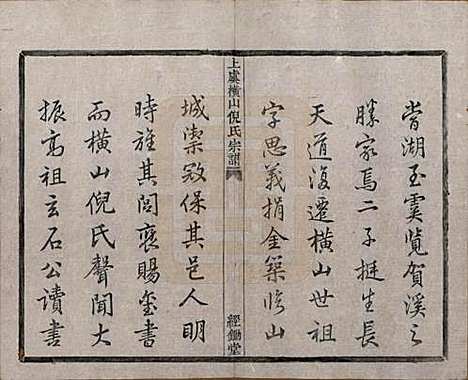 嘗湖至虞覽賀溪之
勝家焉二子挺生長
天道復遷橫山世祖
字思義捐金築臨山
上虞橫山倪氏宗譜
經鋤堂
城禦敵保其邑人明
時旌其閭褒賜璽書
而橫山倪氏聲聞大
振高祖玄石公讀書